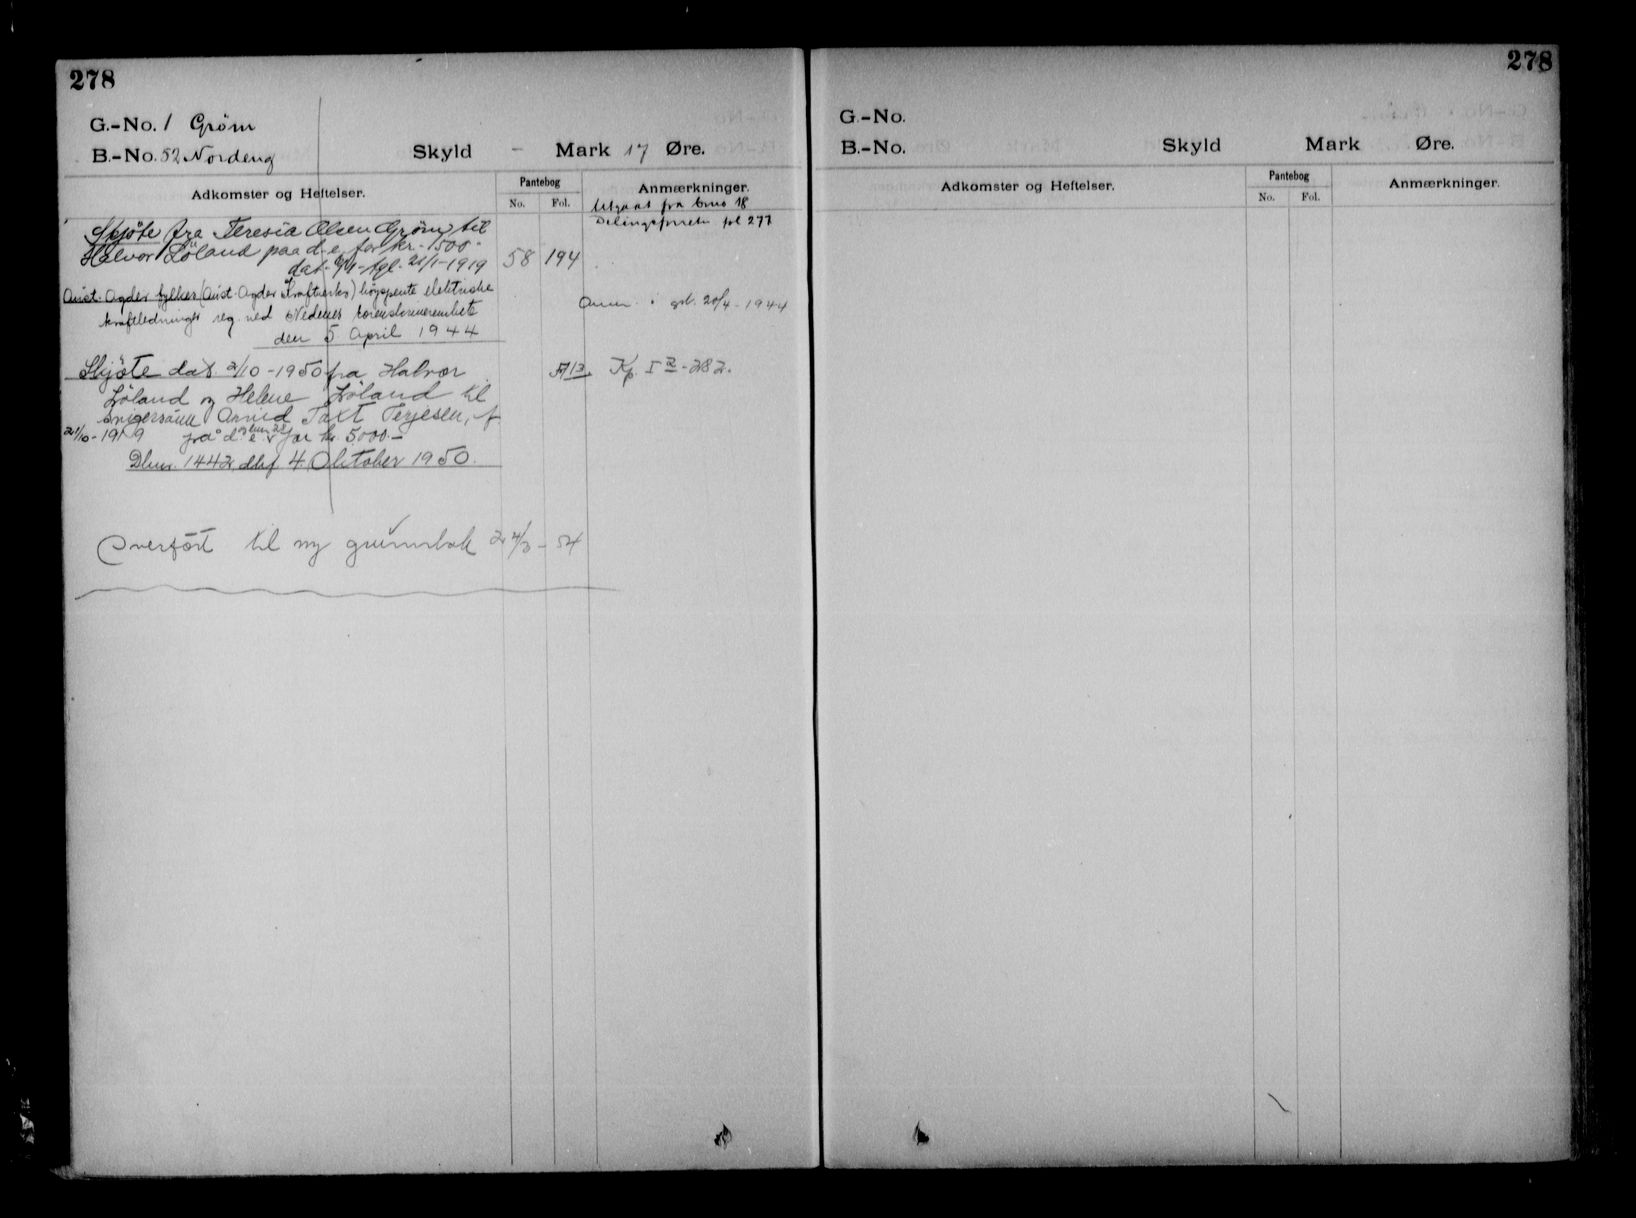 278
G.-No. 1 Grøm
B.-No. 52 Nordeng
Skyld - Mark 17 Øre.
Adkomster og Heftelser.
Pantebog
No. Fol.
Anmærkninger.
Utgaat fra bno 18
Delingsforretn fol 277
Skjöte fra Teresia Olsen Gröm til
Halvor Löland paa d. e. for kr. 1500.-
dat. tgl. 21/1-1919
58 194
Aust-Agder fylkes (Aust-Agder Kraftverks) høyspente elektriske
kraftledninger reg. ved Nedenes sorenskriverembete
den 5 April 1944
Anm. i grb. 20/4-1944
Skjöte dat. 2/10-1950 fra Halvor
Löland og Helene Löland til
svigersönn Arvid Taxt Terjesen, f.
21/10-1919 på d. e. og bnr 28 for kr. 5000.-
Dbnr. 1442, dbf 4 Oktober 1950.
A 13 Kp. I - 282.
Overført til ny grunnbok 24/3-54
278
G.-No.
B.-No.
Skyld Mark Øre.
Adkomster og Heftelser.
Pantebog
No. Fol.
Anmærkninger.